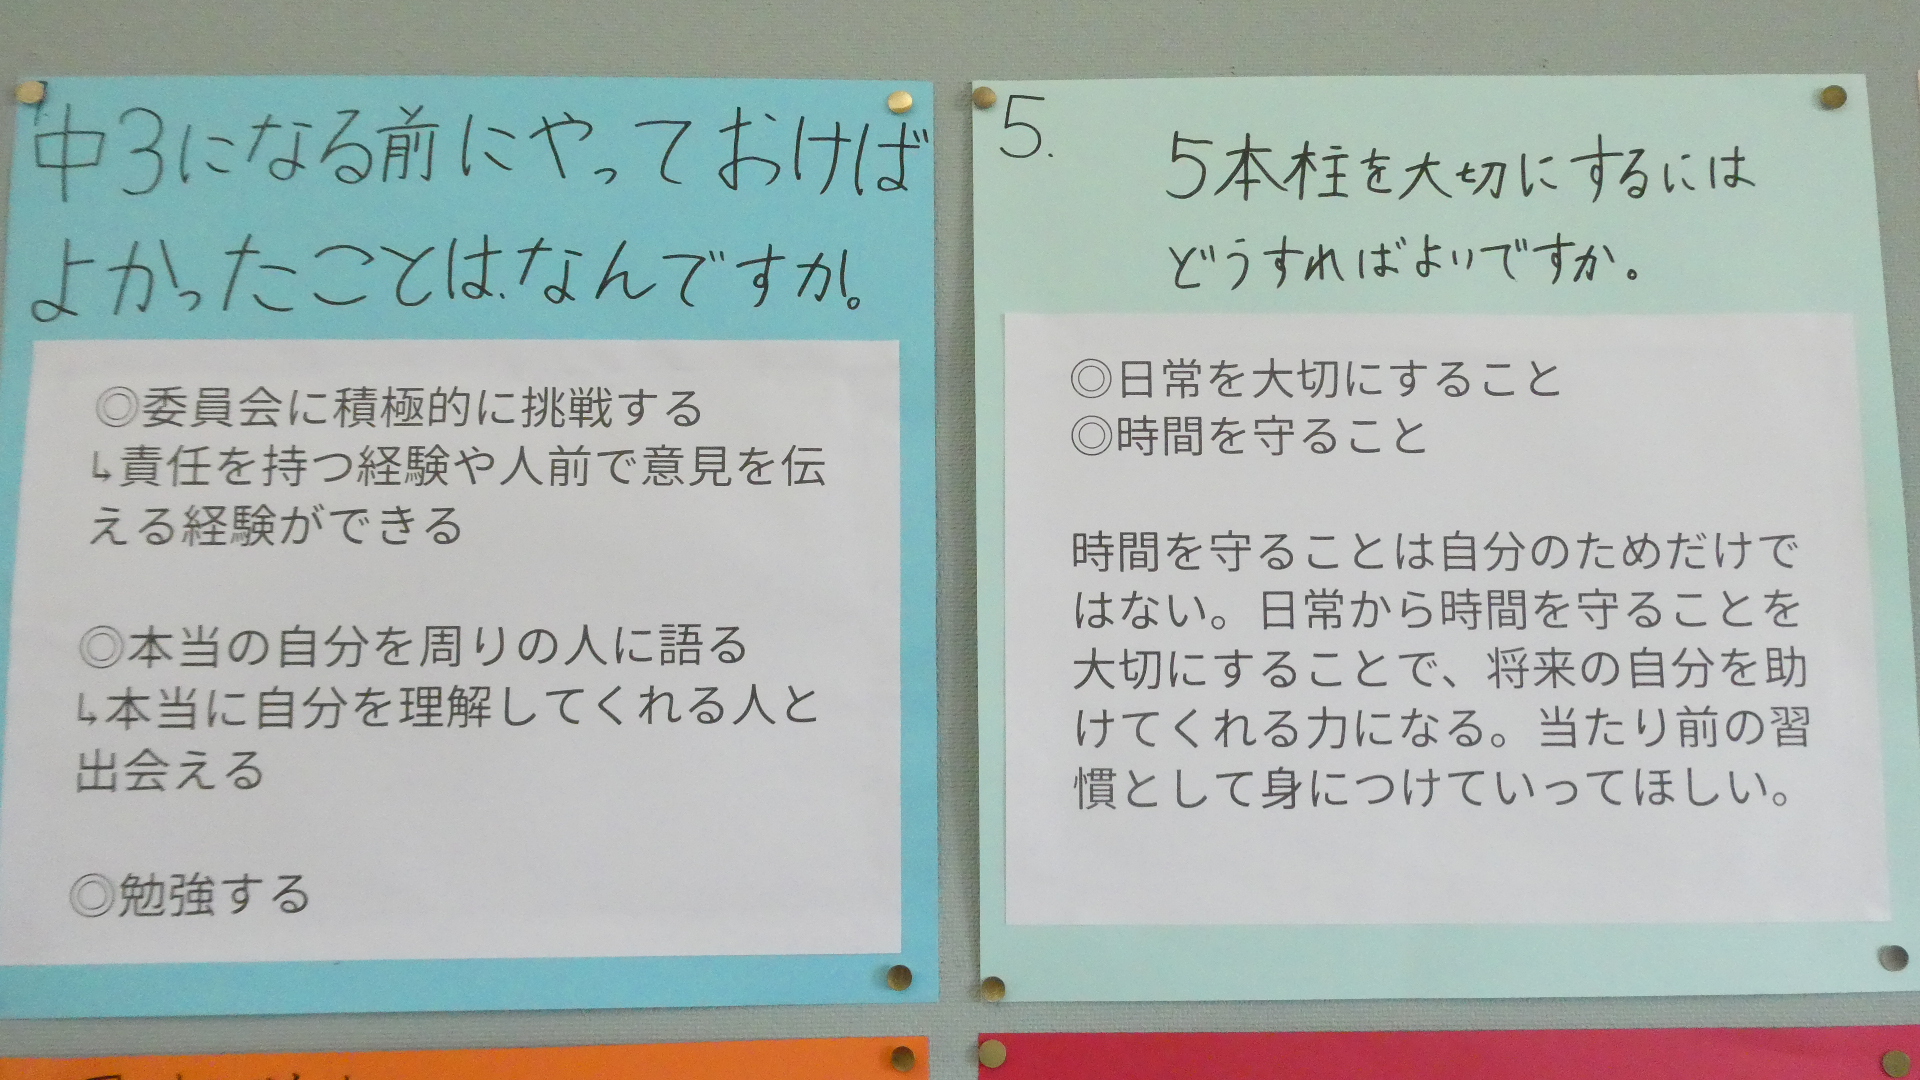 中3になる前にやっておけば
よかったことは、なんですか。
◎委員会に積極的に挑戦する
↳責任を持つ経験や人前で意見を伝
える経験ができる
◎本当の自分を周りの人に語る
↳本当に自分を理解してくれる人と
出会える
◎勉強する
5.
5本柱を大切にするには
どうすればよいですか。
◎日常を大切にすること
◎時間を守ること
時間を守ることは自分のためだけで
はない。日常から時間を守ることを
大切にすることで、将来の自分を助
けてくれる力になる。当たり前の習
慣として身につけていってほしい。